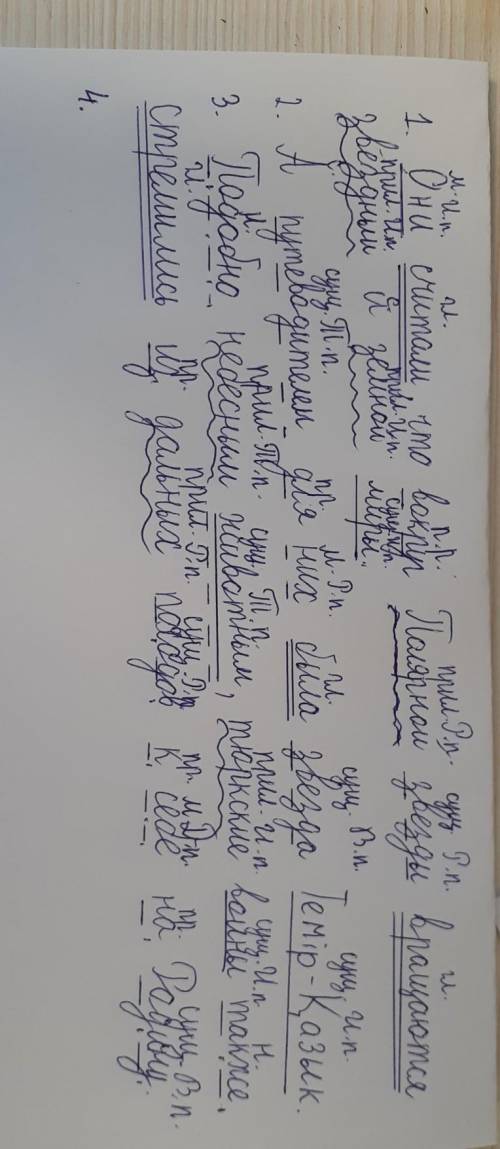 м. И.п. гл. п.п. прил. Р.п. сущ Р.п. гл.
1. Они считали что вокруг Полярной звезды вращаются
прил. И.п. прил. И.п. сущ И.п.
звездный и земной миры.
сущ. Т.п. пр. м. Р.п. гл. сущ. В.п. сущ И.п.
2. А путеводителем для них была звезда Темір-Қазық.
н. прил. Т.п. сущ Т.п. прил. И.п. сущ И.п. н.
3. Подобно небесным животным, тюркские воины также
гл. пр. прил. Р.п. сущ. Р.п. пр. м Д.п. пр. сущ В.п.
стремились из дальных походов к себе на Родину.
4.